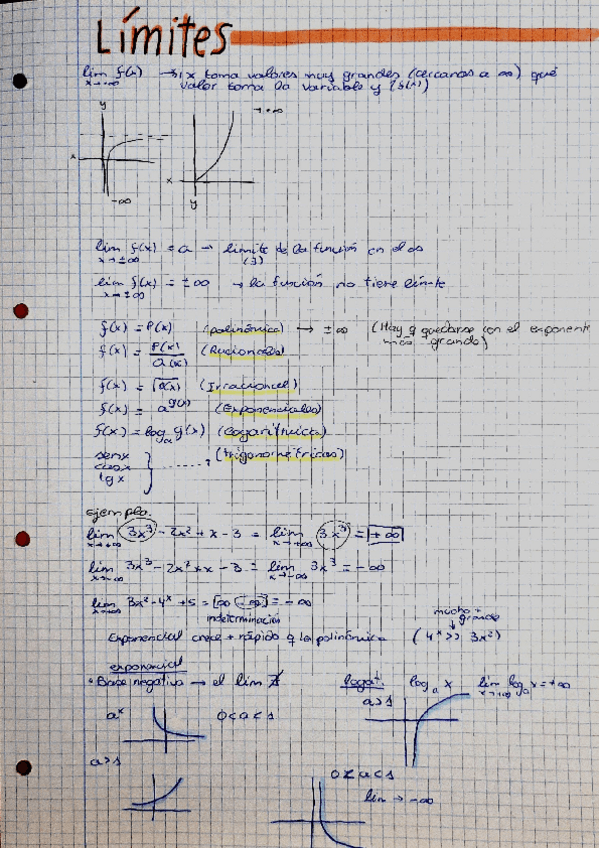 Límites
lim f(x) → si x toma valores muy grandes (cercanos a ∞) qué
x→∞ valor toma la variable y (f(x))
y → +∞
x x
-∞ y
lim f(x) = a → límite de la función en el ∞
x→±∞ (∃)
lim f(x) = ±∞ → la función no tiene límite
x→±∞
f(x) = P(x) (polinómica) → ±∞ (Hay q quedarse con el exponente
más grande)
f(x) = P(x)/Q(x) (Racionales)
f(x) = √ (Irracional)
f(x) = a^g(x) (Exponenciales)
f(x) = log_a g(x) (Logarítmica)
senx
cosx (trigonométricas)
tgx
ejemplo.
lim 3x³ - 2x² + x - 3 = lim 3x³ = +∞
x→+∞ x→+∞
lim 3x³ - 2x² + x - 3 = lim 3x³ = -∞
x→-∞ x→-∞
lim 3x² - 4^x + 5 = [∞ - ∞] = -∞
x→+∞ indeterminación
mucho +
grande
Exponencial crece + rápido q la polinómica (4^x >> 3x²)
exponencial
• Base negativa → el lim ∄
logat. log_a x lim log_a x = +∞
x→+∞
a>1
a^x 0<a<1
a>1
0<a<1
lim → -∞